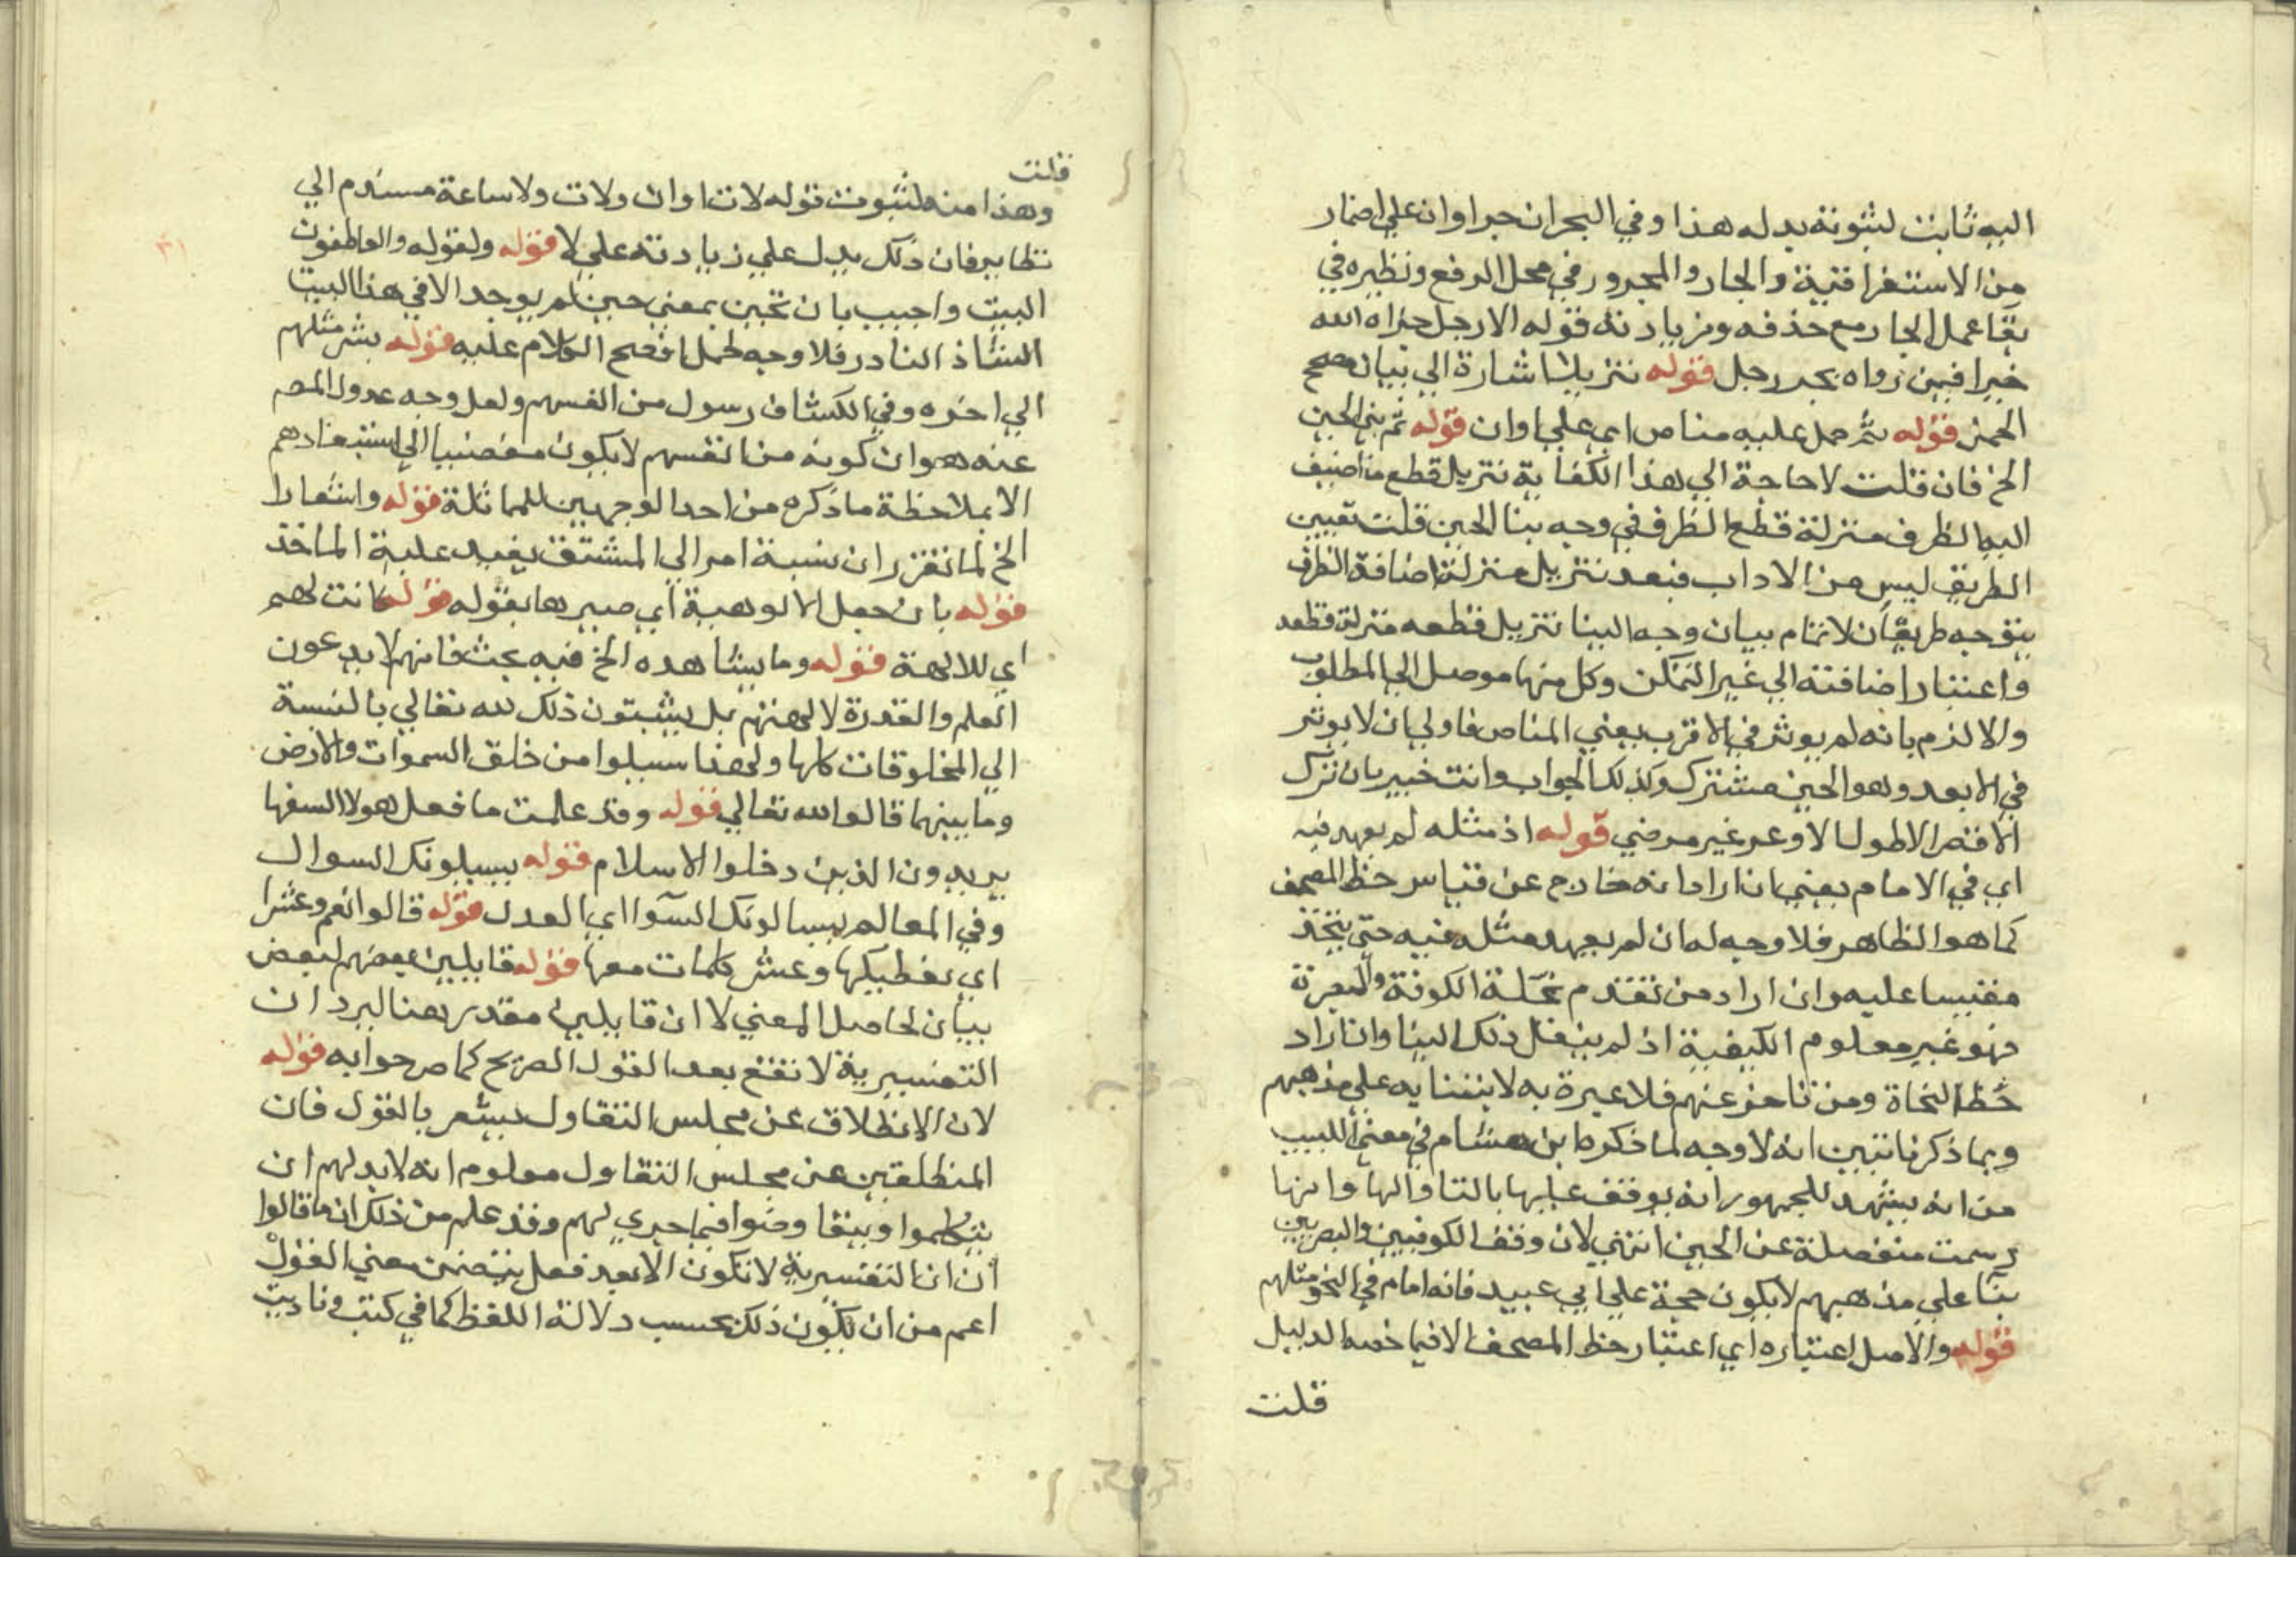 اليه ثابت لثبوته بدله هذا وفي البحر ان جر اوان علي اضمار
من الاستغراقية والجار والمجرور في محل الرفع ونظيره في
بقا عمل الجار مع حذفه وزيادته قوله الا رجل جزاه الله
خيرا فيمن رواه بجر رجل قوله تنزيلا اشارة الي بيان مصحح
الحمل قوله ثم حمل عليه مناص اي علي اوان قوله ثم بني الحين
الخ فان قلت لا حاجة الي هذا الكفاية تنزيل قطع ما اضيف
اليه الظرف منزلة قطع الظرف في وجه بنا الحين قلت تعيين
الطريق ليس من الاداب فبعد تنزيل منزلة اضافة الظرف
يتوجه طريقان لاتمام بيان وجه البنا تنزيل قطعه منزلة قطعه
واعتبار اضافته الي غير المتمكن وكل منهما موصل الي المطلوب
والا لزم بانه لم يوثر في الاقرب يعني المناص فاولي ان لا يوثر
في الابعد وهو الحين مشترك وكذلك الجواب وانت خبير بان ترك
الاقصر الاطول الاوعر غير مرضي قوله اذ مثله لم يعهد فيه
اي في الامام يعني ان اراد انه خارج عن قياس خط المصحف
كما هو الظاهر فلا وجه له ان لم يعهد مثله فيه حتي يتخذ
مقيسا عليه وان اراد من تقدم نحلة الكوفة والبصرة
فهو غير معلوم الكيفية اذ لم ينقل ذلك الينا وان اراد
خط النحاة ومن تاخر عنهم فلا عبرة به لابتنايه علي مذهبهم
وبما ذكرنا تبين انه لا وجه لما ذكره ابن هشام في مغني اللبيب
من انه يشهد للجمهور انه يوقف عليها بالتا والها وانها
رسمت منفصلة عن الحين انتهي لان وقف الكوفيين والبصريين
بنا علي مذهبهم لا يكون حجة علي ابي عبيد فانه امام في النحو مثلهم
قوله والاصل اعتباره اي اعتبار خط المصحف الا فيما خصه الدليل
قلت
قلت
وهذا منه لثبوت قوله لات اوان ولات ولا ساعة مسندم الي
نظاير فان ذلك يدل علي زيادته علي لا قوله ولقوله والعاطفون
البيت واجيب بان تحين بمعني حين لم يوجد الا في هذا البيت
الشاذ النادر فلا وجه لحمل افصح الكلام عليه قوله بشر مثلهم
الي اخره وفي الكشاف رسول من انفسهم ولعل وجه عدول المص
عنه هو ان كونه من انفسهم لا يكون مفضيا الي استبعادهم
الا بملاحظة ما ذكره من احد الوجهين للمماثلة قوله واشعارا
الخ لما تقرر ان نسبة امر الي المشتق يفيد علية الماخذ
قوله بان جعل الالوهية اي صيرها بقوله قوله كانت لهم
اي للالهة قوله وما يشاهده الخ فيه بحث فانهم لا يدعون
العلم والقدرة لالهتهم بل يثبتون ذلك لله تعالي بالنسبة
الي المخلوقات كلها ولهذا سيلوا من خلق السموات والارض
وما بينهما قالوا الله تعالي قوله وقد علمت ما فعل هولا السفها
يريدون الذين دخلوا الاسلام قوله يسيلونك السوال
وفي المعالم يسالونك السوآ اي العدل قوله قالوا نعم وعشرا
اي نعطيكها وعشر كلمات معها قوله قايلين بعضهم لبعض
بيان لحاصل المعني لا ان قايلين مقدر هنا ليرد ان
التفسيرية لا تقع بعد القول الصريح كما صرحوا به قوله
لان الانطلاق عن مجلس التقاول يشعر بالقول فان
المنطلقين عن مجلس التقاول معلوم انه لا بد لهم ان
يتكلموا ويتفاوضوا فيما جري لهم وقد علم من ذلك ان ما قالوا
ان ان التفسرية لا تكون الا بعد فعل يتضمن معني القول
اعم من ان يكون ذلك بحسب دلالة اللفظ كما في كتبت وناديت